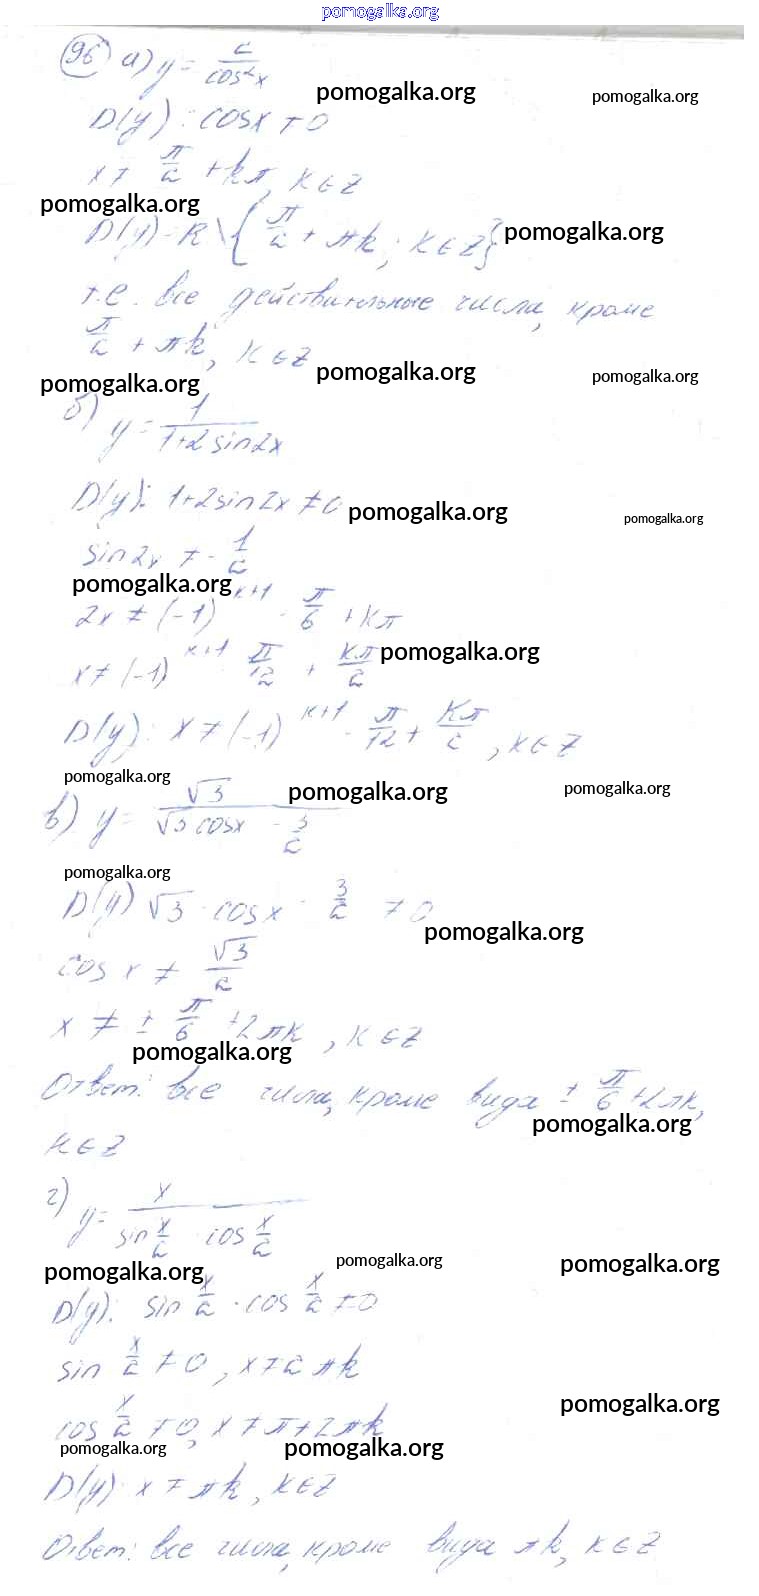 pomogalka.org
96 а) y = 2/cos²x
pomogalka.org pomogalka.org
D(y): cosx ≠ 0
x ≠ π/2 + kπ, k ∈ Z
pomogalka.org
D(y) = R \ {π/2 + πk; k ∈ Z}
pomogalka.org
т.е. все действительные числа, кроме
π/2 + πk, k ∈ Z
pomogalka.org pomogalka.org pomogalka.org
б) y = 1/(1+2sin2x)
D(y): 1+2sin2x ≠ 0
pomogalka.org pomogalka.org
sin2x ≠ -1/2
pomogalka.org
2x ≠ (-1)^(k+1) · π/6 + kπ
x ≠ (-1)^(k+1) π/12 + kπ/2
pomogalka.org
D(y): x ≠ (-1)^(k+1) · π/12 + kπ/2, k ∈ Z
pomogalka.org pomogalka.org pomogalka.org
в) y = √3/(√3 cosx - 3/2)
pomogalka.org
D(y) √3 · cosx - 3/2 ≠ 0
pomogalka.org
cos x ≠ √3/2
x ≠ ± π/6 + 2πk, k ∈ Z
pomogalka.org
Ответ: все числа, кроме вида ± π/6 + 2πk,
pomogalka.org
k ∈ Z
г) y = x/(sin x/2 · cos x/2)
pomogalka.org pomogalka.org pomogalka.org
D(y): sin x/2 · cos x/2 ≠ 0
sin x/2 ≠ 0, x ≠ 2πk
pomogalka.org
cos x/2 ≠ 0, x ≠ π + 2πk
pomogalka.org pomogalka.org
D(y): x ≠ πk, k ∈ Z
Ответ: все числа, кроме вида πk, k ∈ Z